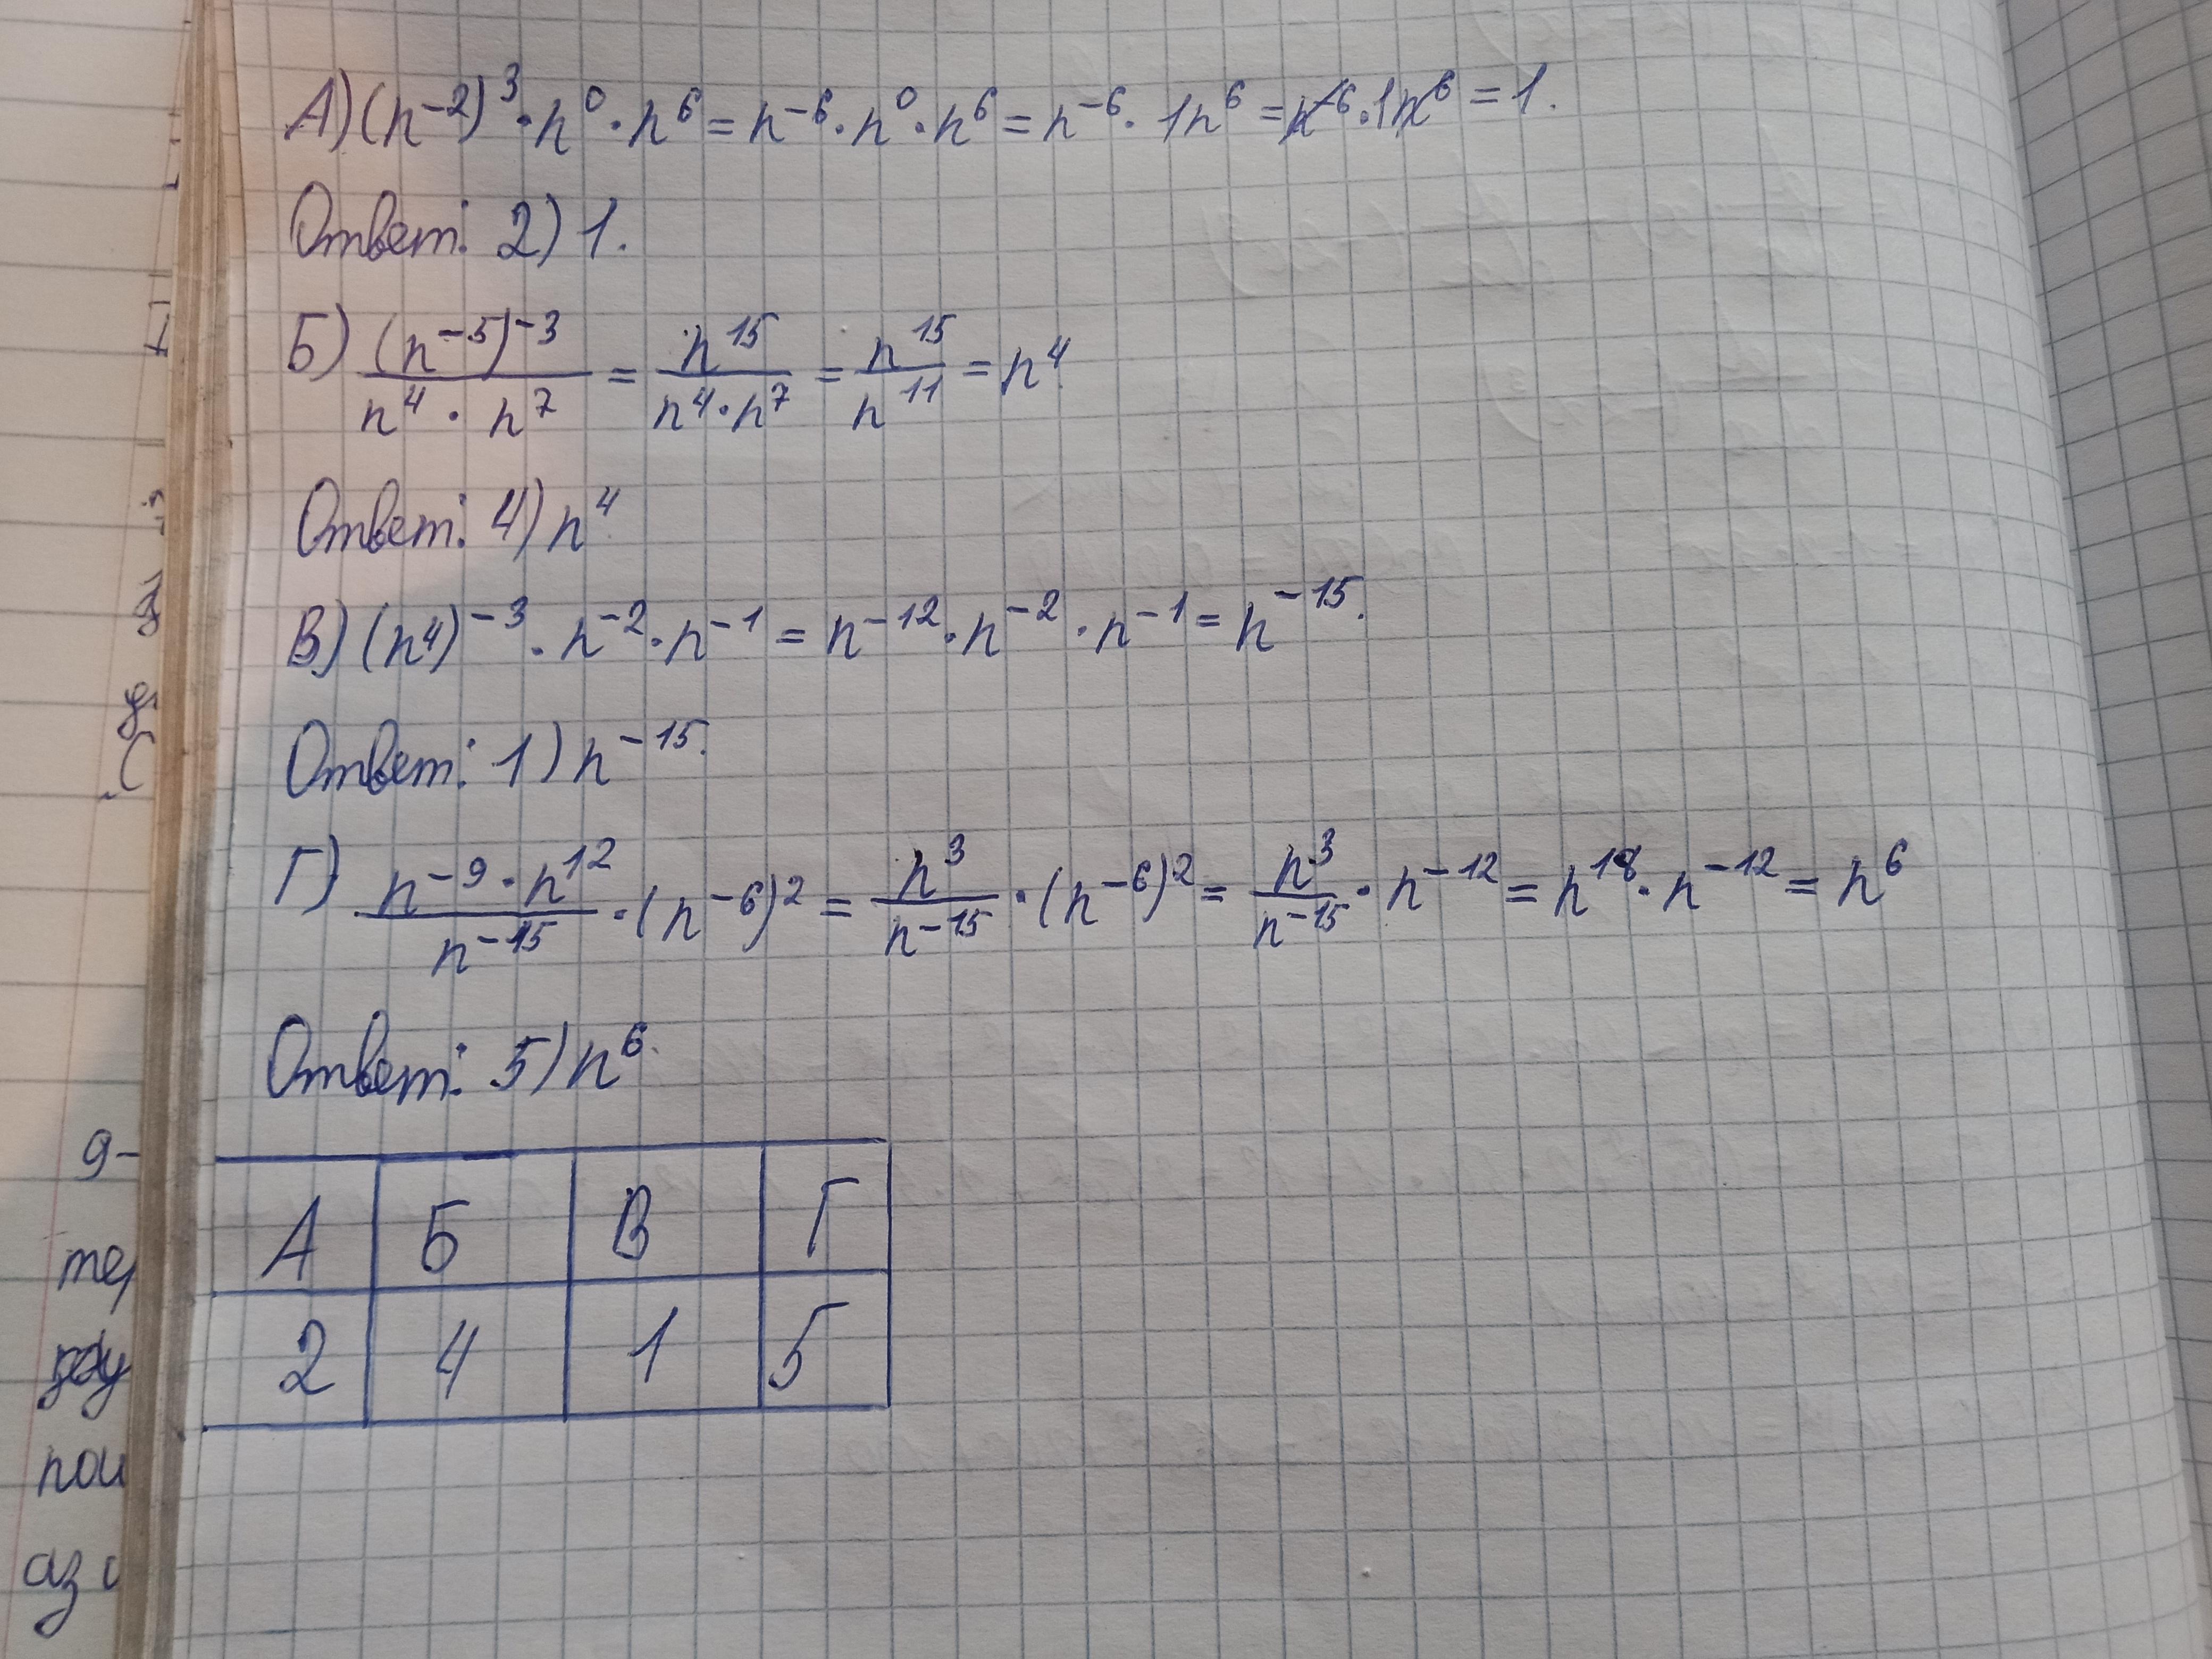 А) (n⁻²)³ · n⁰ · n⁶ = n⁻⁶ · n⁰ · n⁶ = n⁻⁶ · 1n⁶ = n⁻⁶ · 1n⁶ = 1.
Ответ: 2) 1.
Б) (n⁻⁵)⁻³ / n⁴ · n⁷ = n¹⁵ / n⁴ · n⁷ = n¹⁵ / n¹¹ = n⁴.
Ответ: 4) n⁴
В) (n⁴)⁻³ · n⁻² · n⁻¹ = n⁻¹² · n⁻² · n⁻¹ = n⁻¹⁵.
Ответ: 1) n⁻¹⁵.
Г) n⁻⁹ · n¹² / n⁻¹⁵ · (n⁻⁶)² = n³ / n⁻¹⁵ · (n⁻⁶)² = n³ / n⁻¹⁵ · n⁻¹² = n¹⁸ · n⁻¹² = n⁶
Ответ: 5) n⁶.
А Б В Г
2 4 1 5